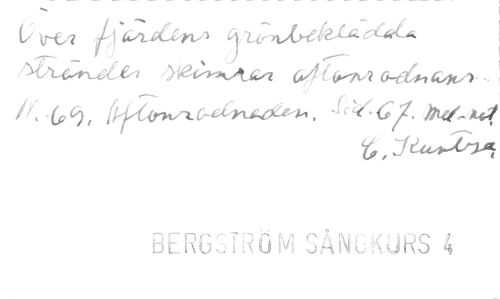 Över fjärdens grönbeklädda
stränder skimrar aftonrodnans
N. 69. Aftonrodnaden. Sid. 67. med-not.
C. Kuntza
BERGSTRÖM SÅNGKURS 4